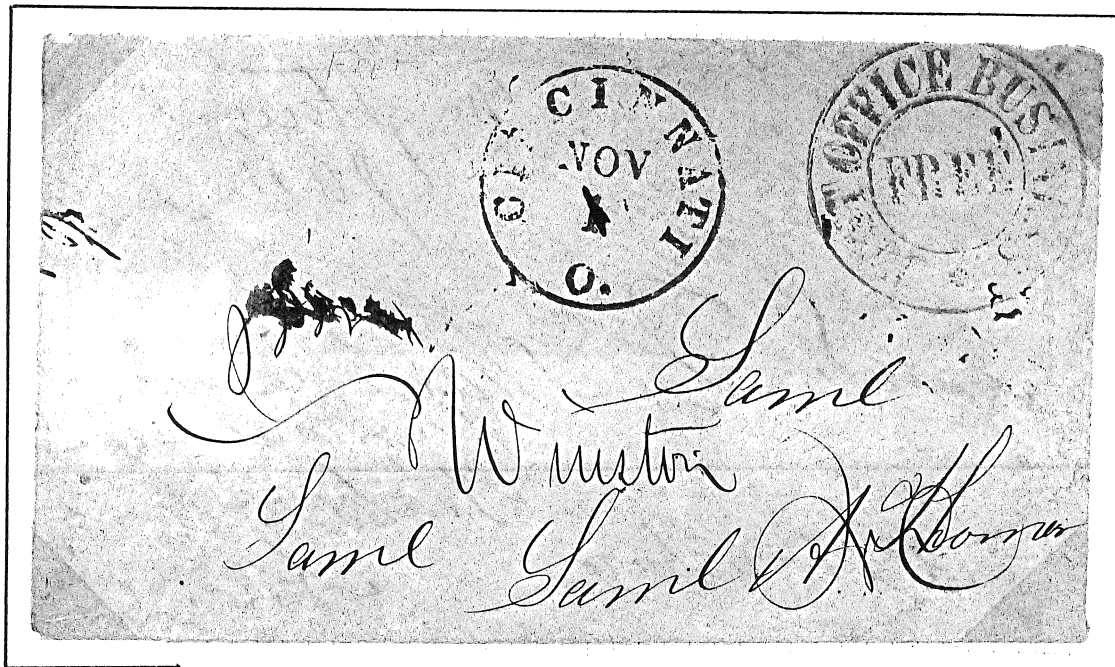 Free
CINCINNATI O.
NOV
POST OFFICE BUSINESS
FREE
Saml
Winston
Saml
Saml